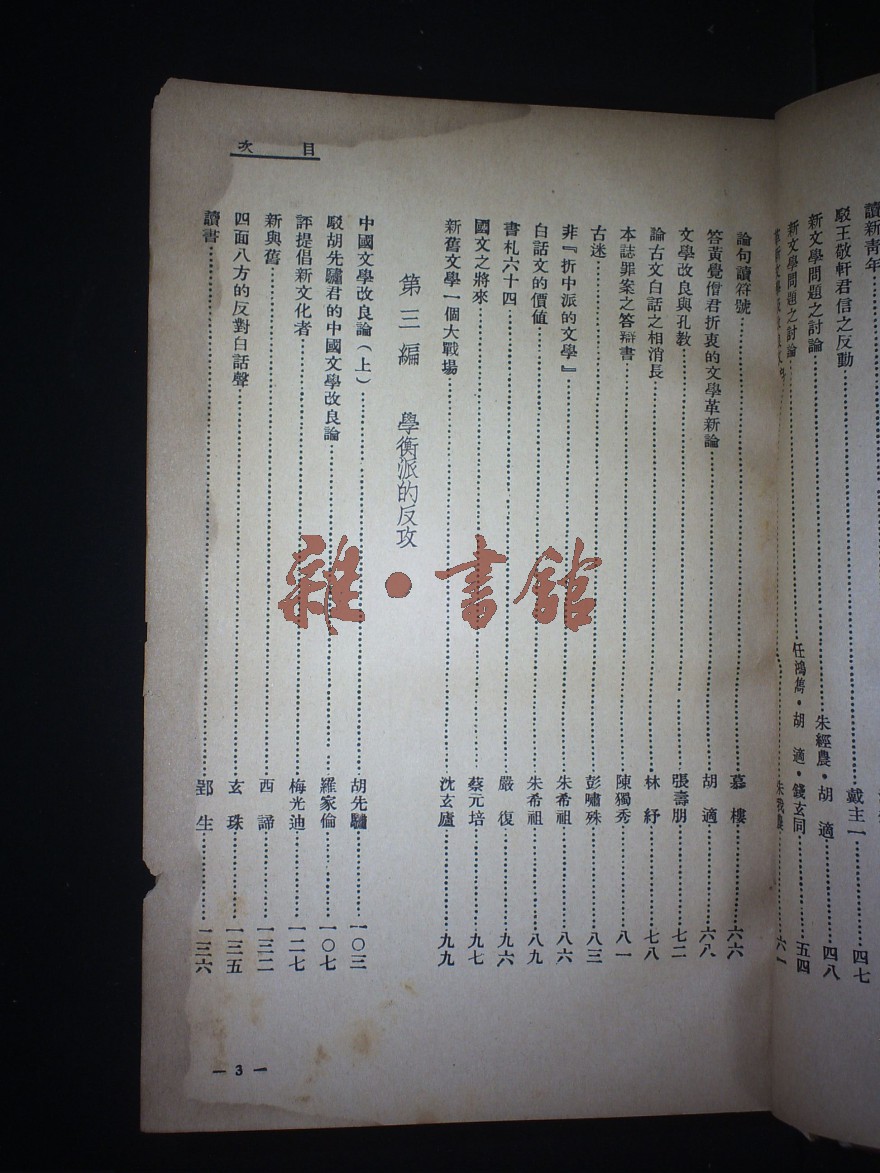 讀新青年
駁王敬軒君信之反動……戴主一……四七
新文學問題之討論……朱經農・胡適……四八
新文學問題之討論……任鴻雋・胡適・錢玄同……五四
朱我農……六一
論句讀符號……慕樓……六六
答黃覺僧君折衷的文學革新論……胡適……六八
文學改良與孔教……張壽朋……七二
論古文白話之相消長……林紓……七八
本誌罪案之答辯書……陳獨秀……八一
古迷……彭嘯殊……八三
非『折中派的文學』……朱希祖……八六
白話文的價値……朱希祖……八九
書札六十四……嚴復……九六
國文之將來……蔡元培……九七
新舊文學一個大戰場……沈玄廬……九九
第三編 學衡派的反攻
中國文學改良論(上)……胡先驌……一〇三
駁胡先驌君的中國文學改良論……羅家倫……一〇七
評提倡新文化者……梅光迪……一二七
新與舊……西諦……一三二
四面八方的反對白話聲……玄珠……一三五
讀書……郢生……一三六
目次
— 3 —
雜・書館